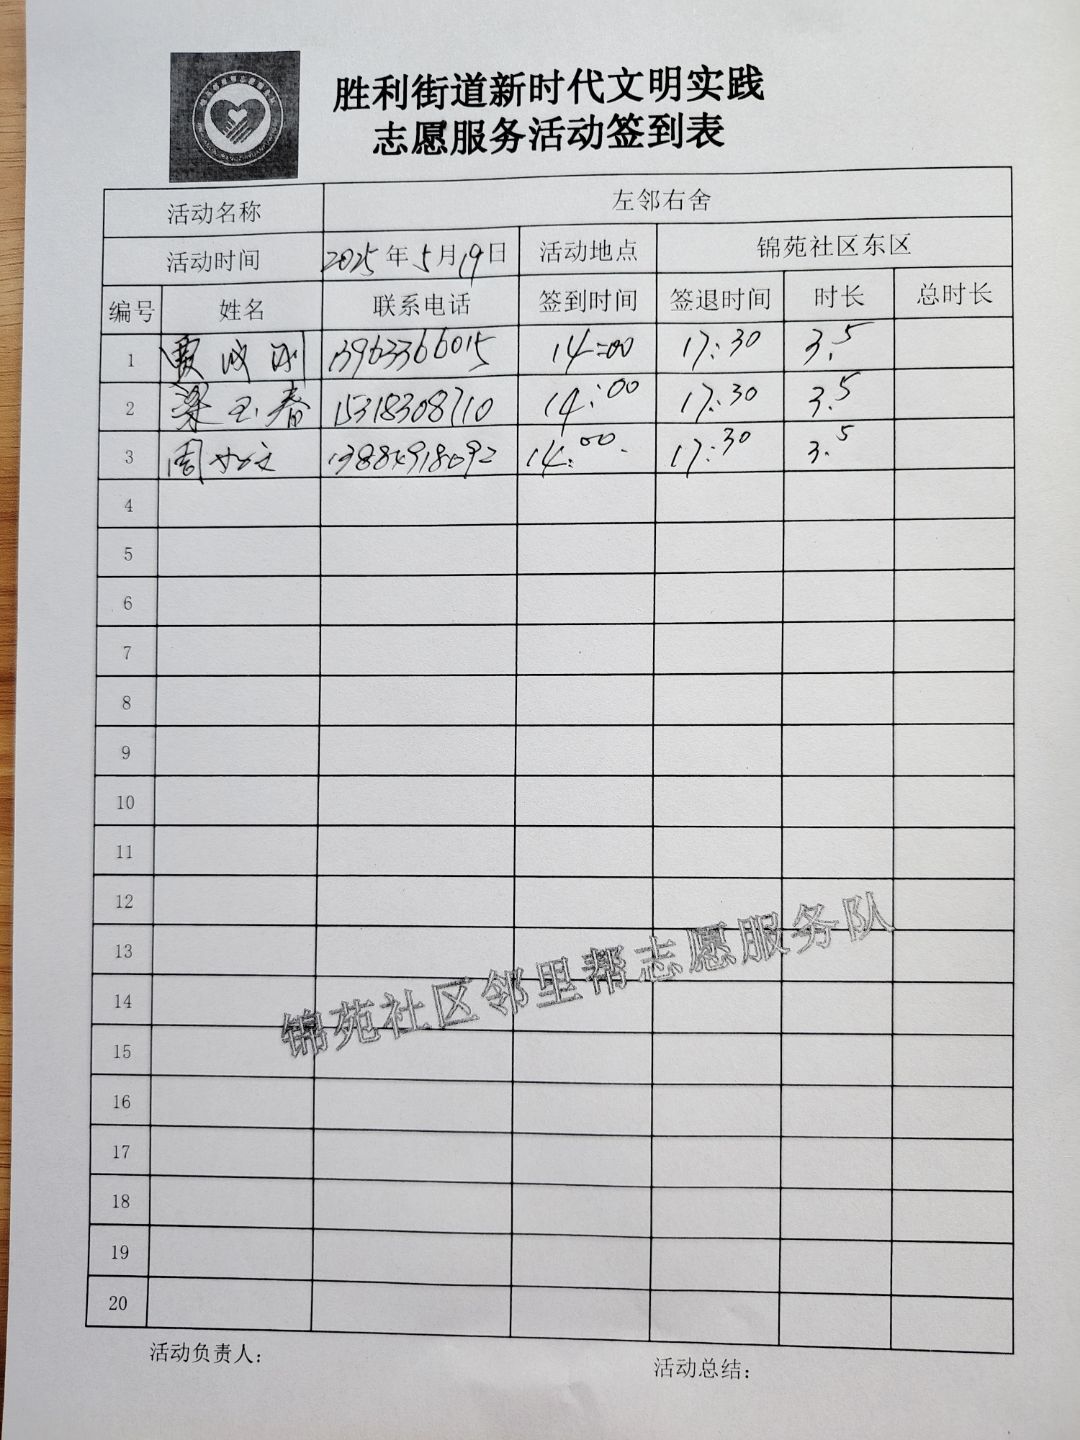 胜利街道新时代文明实践
志愿服务活动签到表
活动名称 左邻右舍
活动时间 2025年5月19日 活动地点 锦苑社区东区
编号 姓名 联系电话 签到时间 签退时间 时长 总时长
1 贾 13963366015 14:00 17:30 3.5
2 梁玉春 15318308710 14:00 17:30 3.5
3 周 14:00 17:30 3.5
4
5
6
7
8
9
10
11
12
13
14
15
16
17
18
19
20
锦苑社区邻里帮志愿服务队
活动负责人: 活动总结: